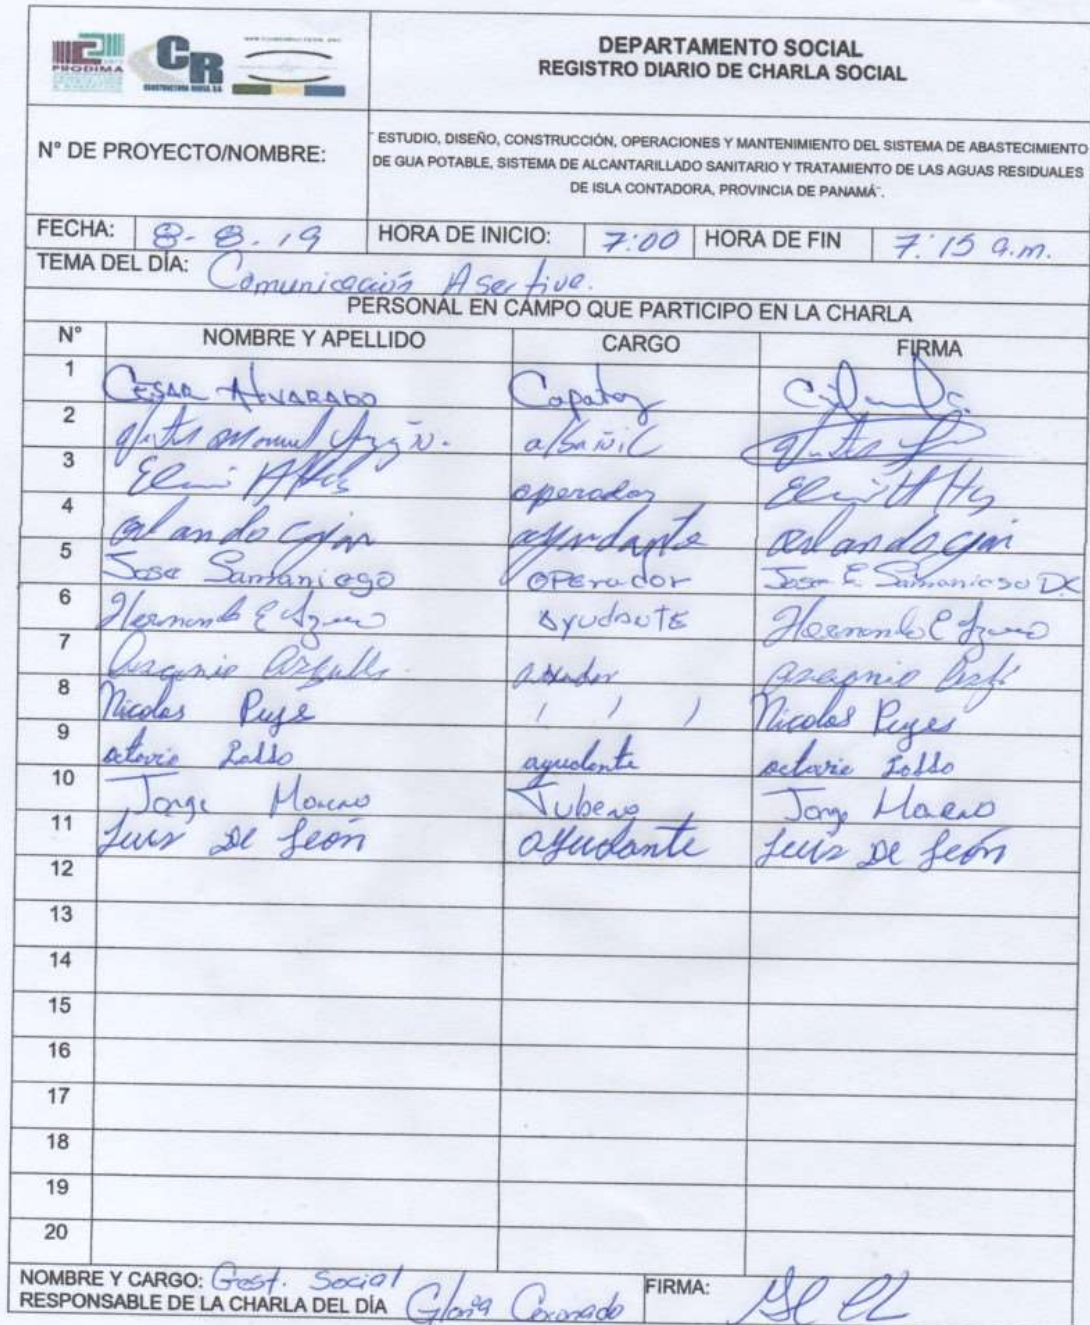 PRODIMA
CR
CONSTRUCTORA RODSA, S.A.
DEPARTAMENTO SOCIAL
REGISTRO DIARIO DE CHARLA SOCIAL
N° DE PROYECTO/NOMBRE:
¨ ESTUDIO, DISEÑO, CONSTRUCCIÓN, OPERACIONES Y MANTENIMIENTO DEL SISTEMA DE ABASTECIMIENTO
DE GUA POTABLE, SISTEMA DE ALCANTARILLADO SANITARIO Y TRATAMIENTO DE LAS AGUAS RESIDUALES
DE ISLA CONTADORA, PROVINCIA DE PANAMÁ¨.
FECHA: 8-8.19 HORA DE INICIO: 7:00 HORA DE FIN 7:15 a.m.
TEMA DEL DÍA: Comunicación Asertiva.
PERSONAL EN CAMPO QUE PARTICIPO EN LA CHARLA
N° NOMBRE Y APELLIDO CARGO FIRMA
1 CESAR ALVARADO Capataz
2 Manuel albañil
3 operador
4 orlando ayudante orlando
5 Jose Samaniego OPErador Jose E. Samaniego D.C
6 Hernando E Ayudante Hernando E
7 arcenio arcenio
8 Nicolas Puge / / / Nicolas Puges
9 octavio Lasso ayudante octavio Lasso
10 Jorge Moreno Tubero Jorge Moreno
11 Luis De León ayudante Luis De León
12
13
14
15
16
17
18
19
20
NOMBRE Y CARGO: Gest. Social
RESPONSABLE DE LA CHARLA DEL DÍA Gloria Coronado FIRMA: